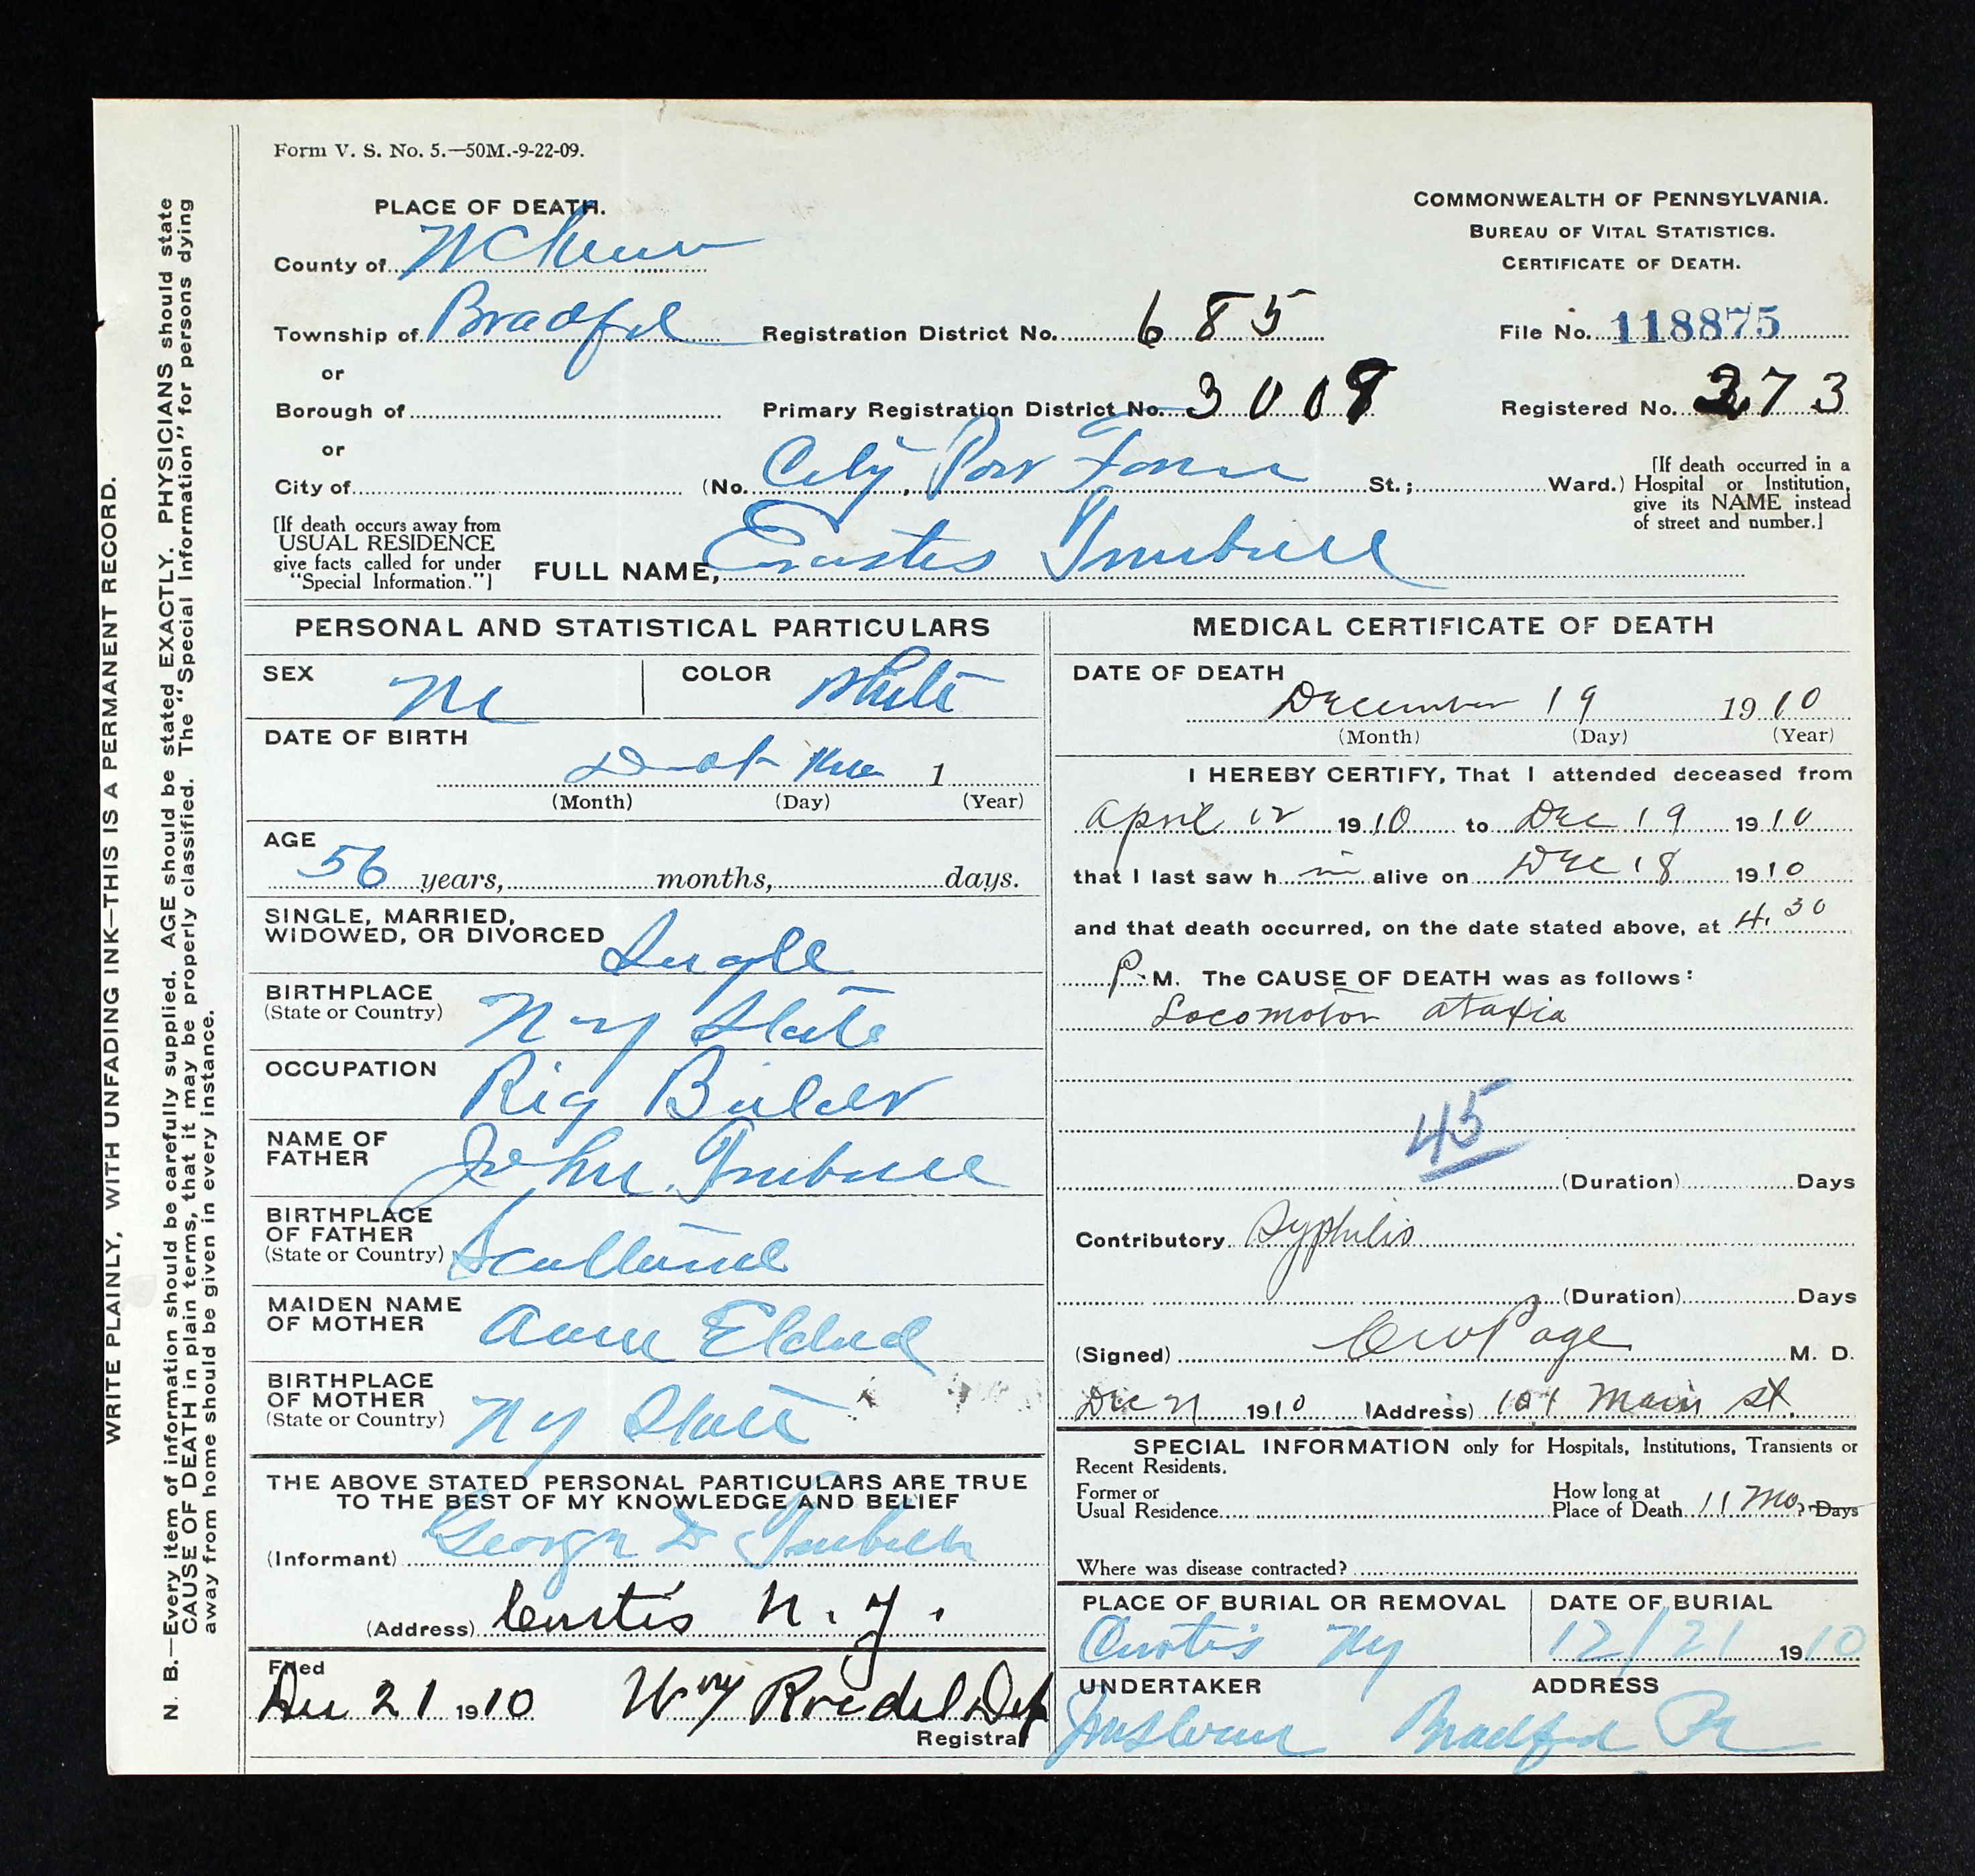 Form V. S. No. 5.—50M.-9-22-09.
PLACE OF DEATH.
County of McKean
Township of Bradford
or
Borough of
or
City of
Registration District No. 685
Primary Registration District No. 3009
(No. City Poor Farm St.; Ward.)
COMMONWEALTH OF PENNSYLVANIA.
BUREAU OF VITAL STATISTICS.
CERTIFICATE OF DEATH.
File No. 118875
Registered No. 373
[If death occurred in a
Hospital or Institution,
give its NAME instead
of street and number.]
[If death occurs away from
USUAL RESIDENCE
give facts called for under
"Special Information."]
FULL NAME, Erastes Turnbull
PERSONAL AND STATISTICAL PARTICULARS
SEX M
COLOR White
DATE OF BIRTH
Do not Know 1
(Month) (Day) (Year)
AGE
56 years, months, days.
SINGLE, MARRIED,
WIDOWED, OR DIVORCED Single
BIRTHPLACE
(State or Country) N Y State
OCCUPATION Rig Builder
NAME OF
FATHER John Turnbull
BIRTHPLACE
OF FATHER
(State or Country) Scotland
MAIDEN NAME
OF MOTHER Eldred
BIRTHPLACE
OF MOTHER
(State or Country) N Y State
THE ABOVE STATED PERSONAL PARTICULARS ARE TRUE
TO THE BEST OF MY KNOWLEDGE AND BELIEF
(Informant) George D Turnbull
(Address) Curtis N. Y.
Filed
Dec 21 1910 Wm Roedel Dep
Registrar
MEDICAL CERTIFICATE OF DEATH
DATE OF DEATH
December 19 1910
(Month) (Day) (Year)
I HEREBY CERTIFY, That I attended deceased from
April 12 1910 to Dec 19 1910
that I last saw h im alive on Dec 18 1910
and that death occurred, on the date stated above, at 4.30
P. M. The CAUSE OF DEATH was as follows:
Locomotor ataxia
45
(Duration) Days
Contributory Syphilis
(Duration) Days
(Signed) Page M. D.
Dec 21 1910 (Address) 101 Main st.
SPECIAL INFORMATION only for Hospitals, Institutions, Transients or
Recent Residents.
Former or
Usual Residence
How long at
Place of Death 11 Mo, Days
Where was disease contracted?
PLACE OF BURIAL OR REMOVAL
Curtis Ny
DATE OF BURIAL
12/21 1910
UNDERTAKER
ADDRESS
Bradford Pa
WRITE PLAINLY, WITH UNFADING INK—THIS IS A PERMANENT RECORD.
N. B.—Every item of information should be carefully supplied. AGE should be stated EXACTLY. PHYSICIANS should state
CAUSE OF DEATH in plain terms, that it may be properly classified. The "Special Information" for persons dying
away from home should be given in every instance.